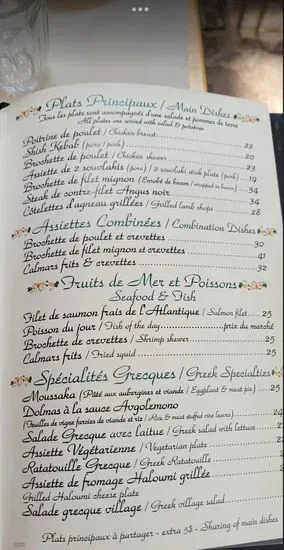 Plats Principaux / Main Dishes
Tous les plats sont accompagnés d'une salade et pommes de terre
All plates are served with salad & potatoes
Poitrine de poulet / Chicken breast 22
Shish Kebab (porc / pork) 20
Brochette de poulet / Chicken skewer 23
Assiette de 2 souvlakis (porc) / 2 souvlaki stick plate (pork) 19
Brochette de filet mignon (Enrobé de bacon / wrapped in bacon) 34
Steak de contre-filet Angus noir 34
Côtelettes d'agneau grillées / Grilled lamb chops 28
Assiettes Combinées / Combination Dishes
Brochette de poulet et crevettes 30
Brochette de filet mignon et crevettes 41
Calmars frits & crevettes 32
Fruits de Mer et Poissons
Seafood & Fish
Filet de saumon frais de l'Atlantique / Salmon filet 25
Poisson du jour / Fish of the day prix du marché
Brochette de crevettes / Shrimp skewer 25
Calmars frits / Fried squid 25
Spécialités Grecques / Greek Specialties
Moussaka (Pâté aux aubergines et viande / Eggplant & meat pie) 25
Dolmas à la sauce Avgolemono
(Feuilles de vignes farcies de viande et riz / Rice & meat stuffed vine leaves)
Salade Grecque avec laitue / Greek salad with lettuce
Assiette Végétarienne / Vegetarian plate
Ratatouille Grecque / Greek Ratatouille
Assiette de fromage Haloumi grillée
Grilled Haloumi cheese plate
Salade grecque village / Greek village salad
Plats principaux à partager - extra 5$ - Sharing of main dishes